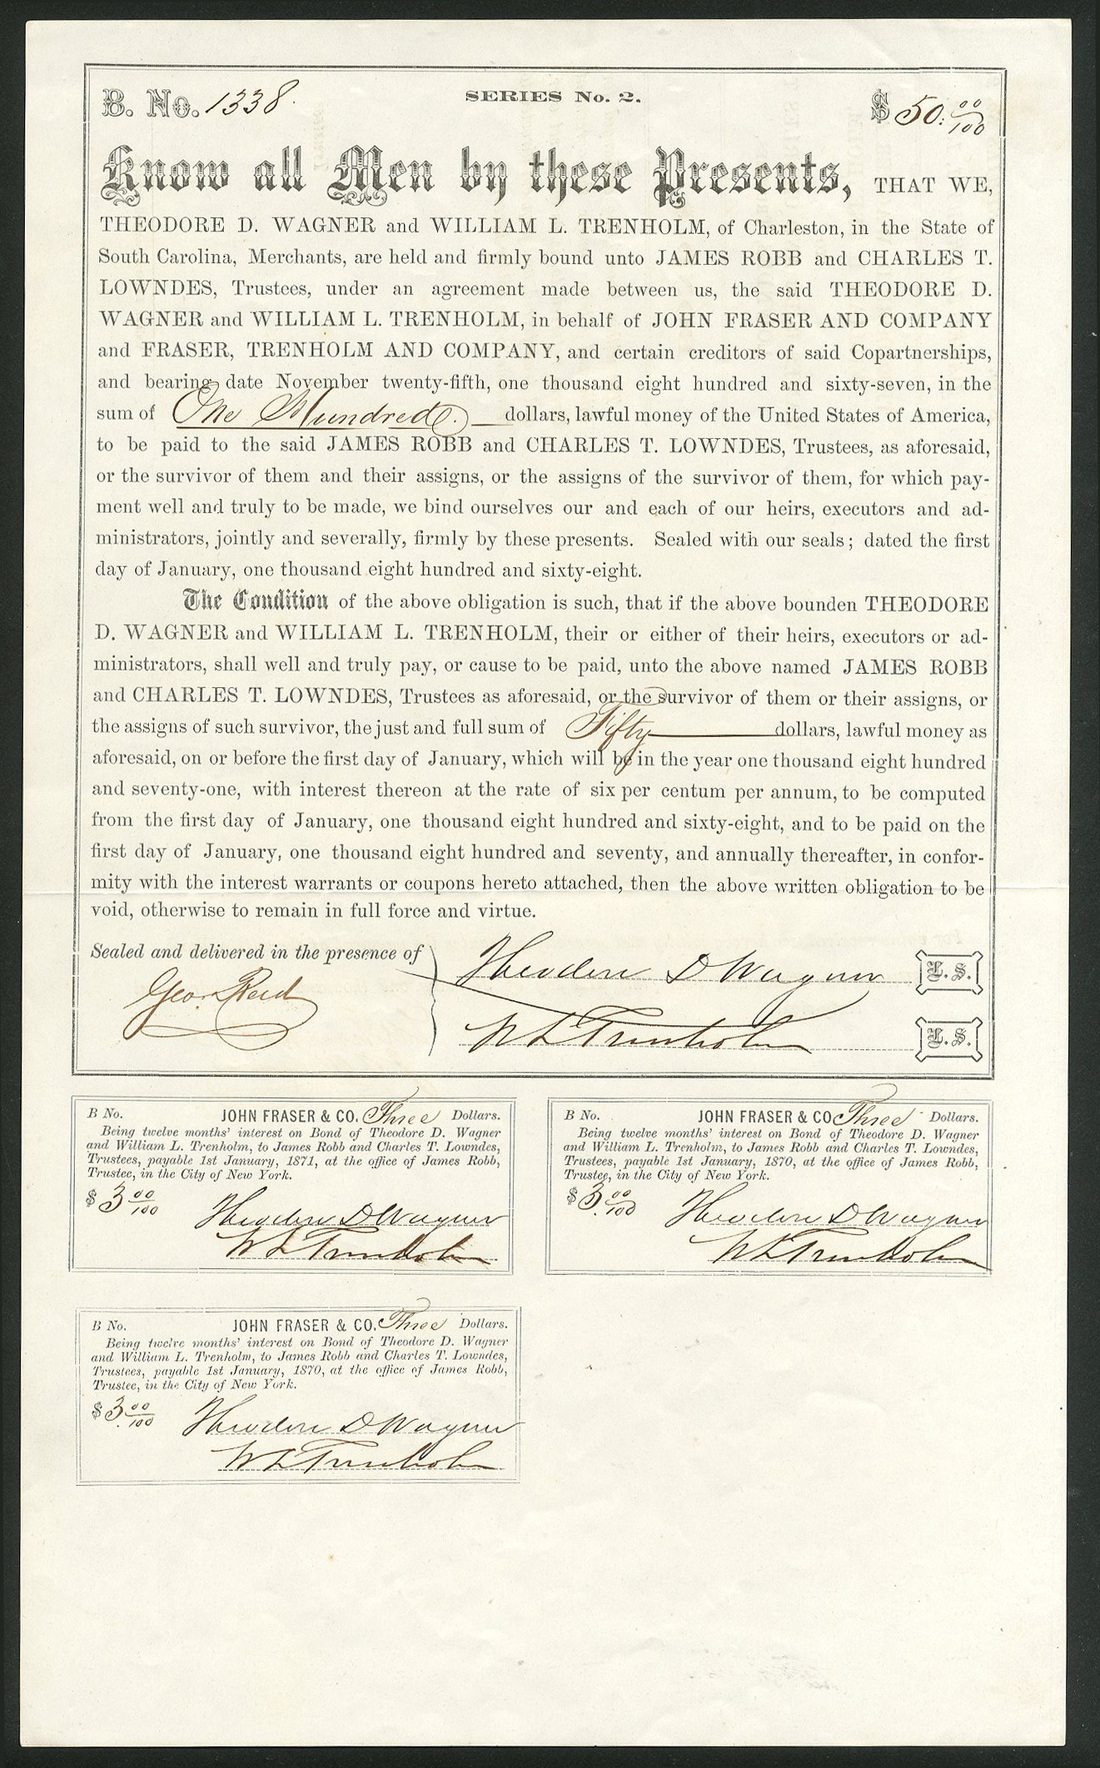 B. No. 1338. SERIES No. 2. $ 50. 00/100
Know all Men by these Presents, THAT WE,
THEODORE D. WAGNER and WILLIAM L. TRENHOLM, of Charleston, in the State of
South Carolina, Merchants, are held and firmly bound unto JAMES ROBB and CHARLES T.
LOWNDES, Trustees, under an agreement made between us, the said THEODORE D.
WAGNER and WILLIAM L. TRENHOLM, in behalf of JOHN FRASER AND COMPANY
and FRASER, TRENHOLM AND COMPANY, and certain creditors of said Copartnerships,
and bearing date November twenty-fifth, one thousand eight hundred and sixty-seven, in the
sum of One Hundred. dollars, lawful money of the United States of America,
to be paid to the said JAMES ROBB and CHARLES T. LOWNDES, Trustees, as aforesaid,
or the survivor of them and their assigns, or the assigns of the survivor of them, for which pay-
ment well and truly to be made, we bind ourselves our and each of our heirs, executors and ad-
ministrators, jointly and severally, firmly by these presents. Sealed with our seals; dated the first
day of January, one thousand eight hundred and sixty-eight.
The Condition of the above obligation is such, that if the above bounden THEODORE
D. WAGNER and WILLIAM L. TRENHOLM, their or either of their heirs, executors or ad-
ministrators, shall well and truly pay, or cause to be paid, unto the above named JAMES ROBB
and CHARLES T. LOWNDES, Trustees as aforesaid, or the survivor of them or their assigns, or
the assigns of such survivor, the just and full sum of Fifty dollars, lawful money as
aforesaid, on or before the first day of January, which will be in the year one thousand eight hundred
and seventy-one, with interest thereon at the rate of six per centum per annum, to be computed
from the first day of January, one thousand eight hundred and sixty-eight, and to be paid on the
first day of January, one thousand eight hundred and seventy, and annually thereafter, in confor-
mity with the interest warrants or coupons hereto attached, then the above written obligation to be
void, otherwise to remain in full force and virtue.
Sealed and delivered in the presence of
Geo. Reid
Theodore D Wagner L. S.
W L Trenholm L. S.
B No. JOHN FRASER & CO. Three Dollars.
Being twelve months' interest on Bond of Theodore D. Wagner
and William L. Trenholm, to James Robb and Charles T. Lowndes,
Trustees, payable 1st January, 1871, at the office of James Robb,
Trustee, in the City of New York.
$ 3 00/100
Theodore D Wagner
W L Trenholm
B No. JOHN FRASER & CO. Three Dollars.
Being twelve months' interest on Bond of Theodore D. Wagner
and William L. Trenholm, to James Robb and Charles T. Lowndes,
Trustees, payable 1st January, 1870, at the office of James Robb,
Trustee, in the City of New York.
$ 3. 00/100
Theodore D Wagner
W L Trenholm
B No. JOHN FRASER & CO. Three Dollars.
Being twelve months' interest on Bond of Theodore D. Wagner
and William L. Trenholm, to James Robb and Charles T. Lowndes,
Trustees, payable 1st January, 1870, at the office of James Robb,
Trustee, in the City of New York.
$ 3 00/100
Theodore D Wagner
W L Trenholm